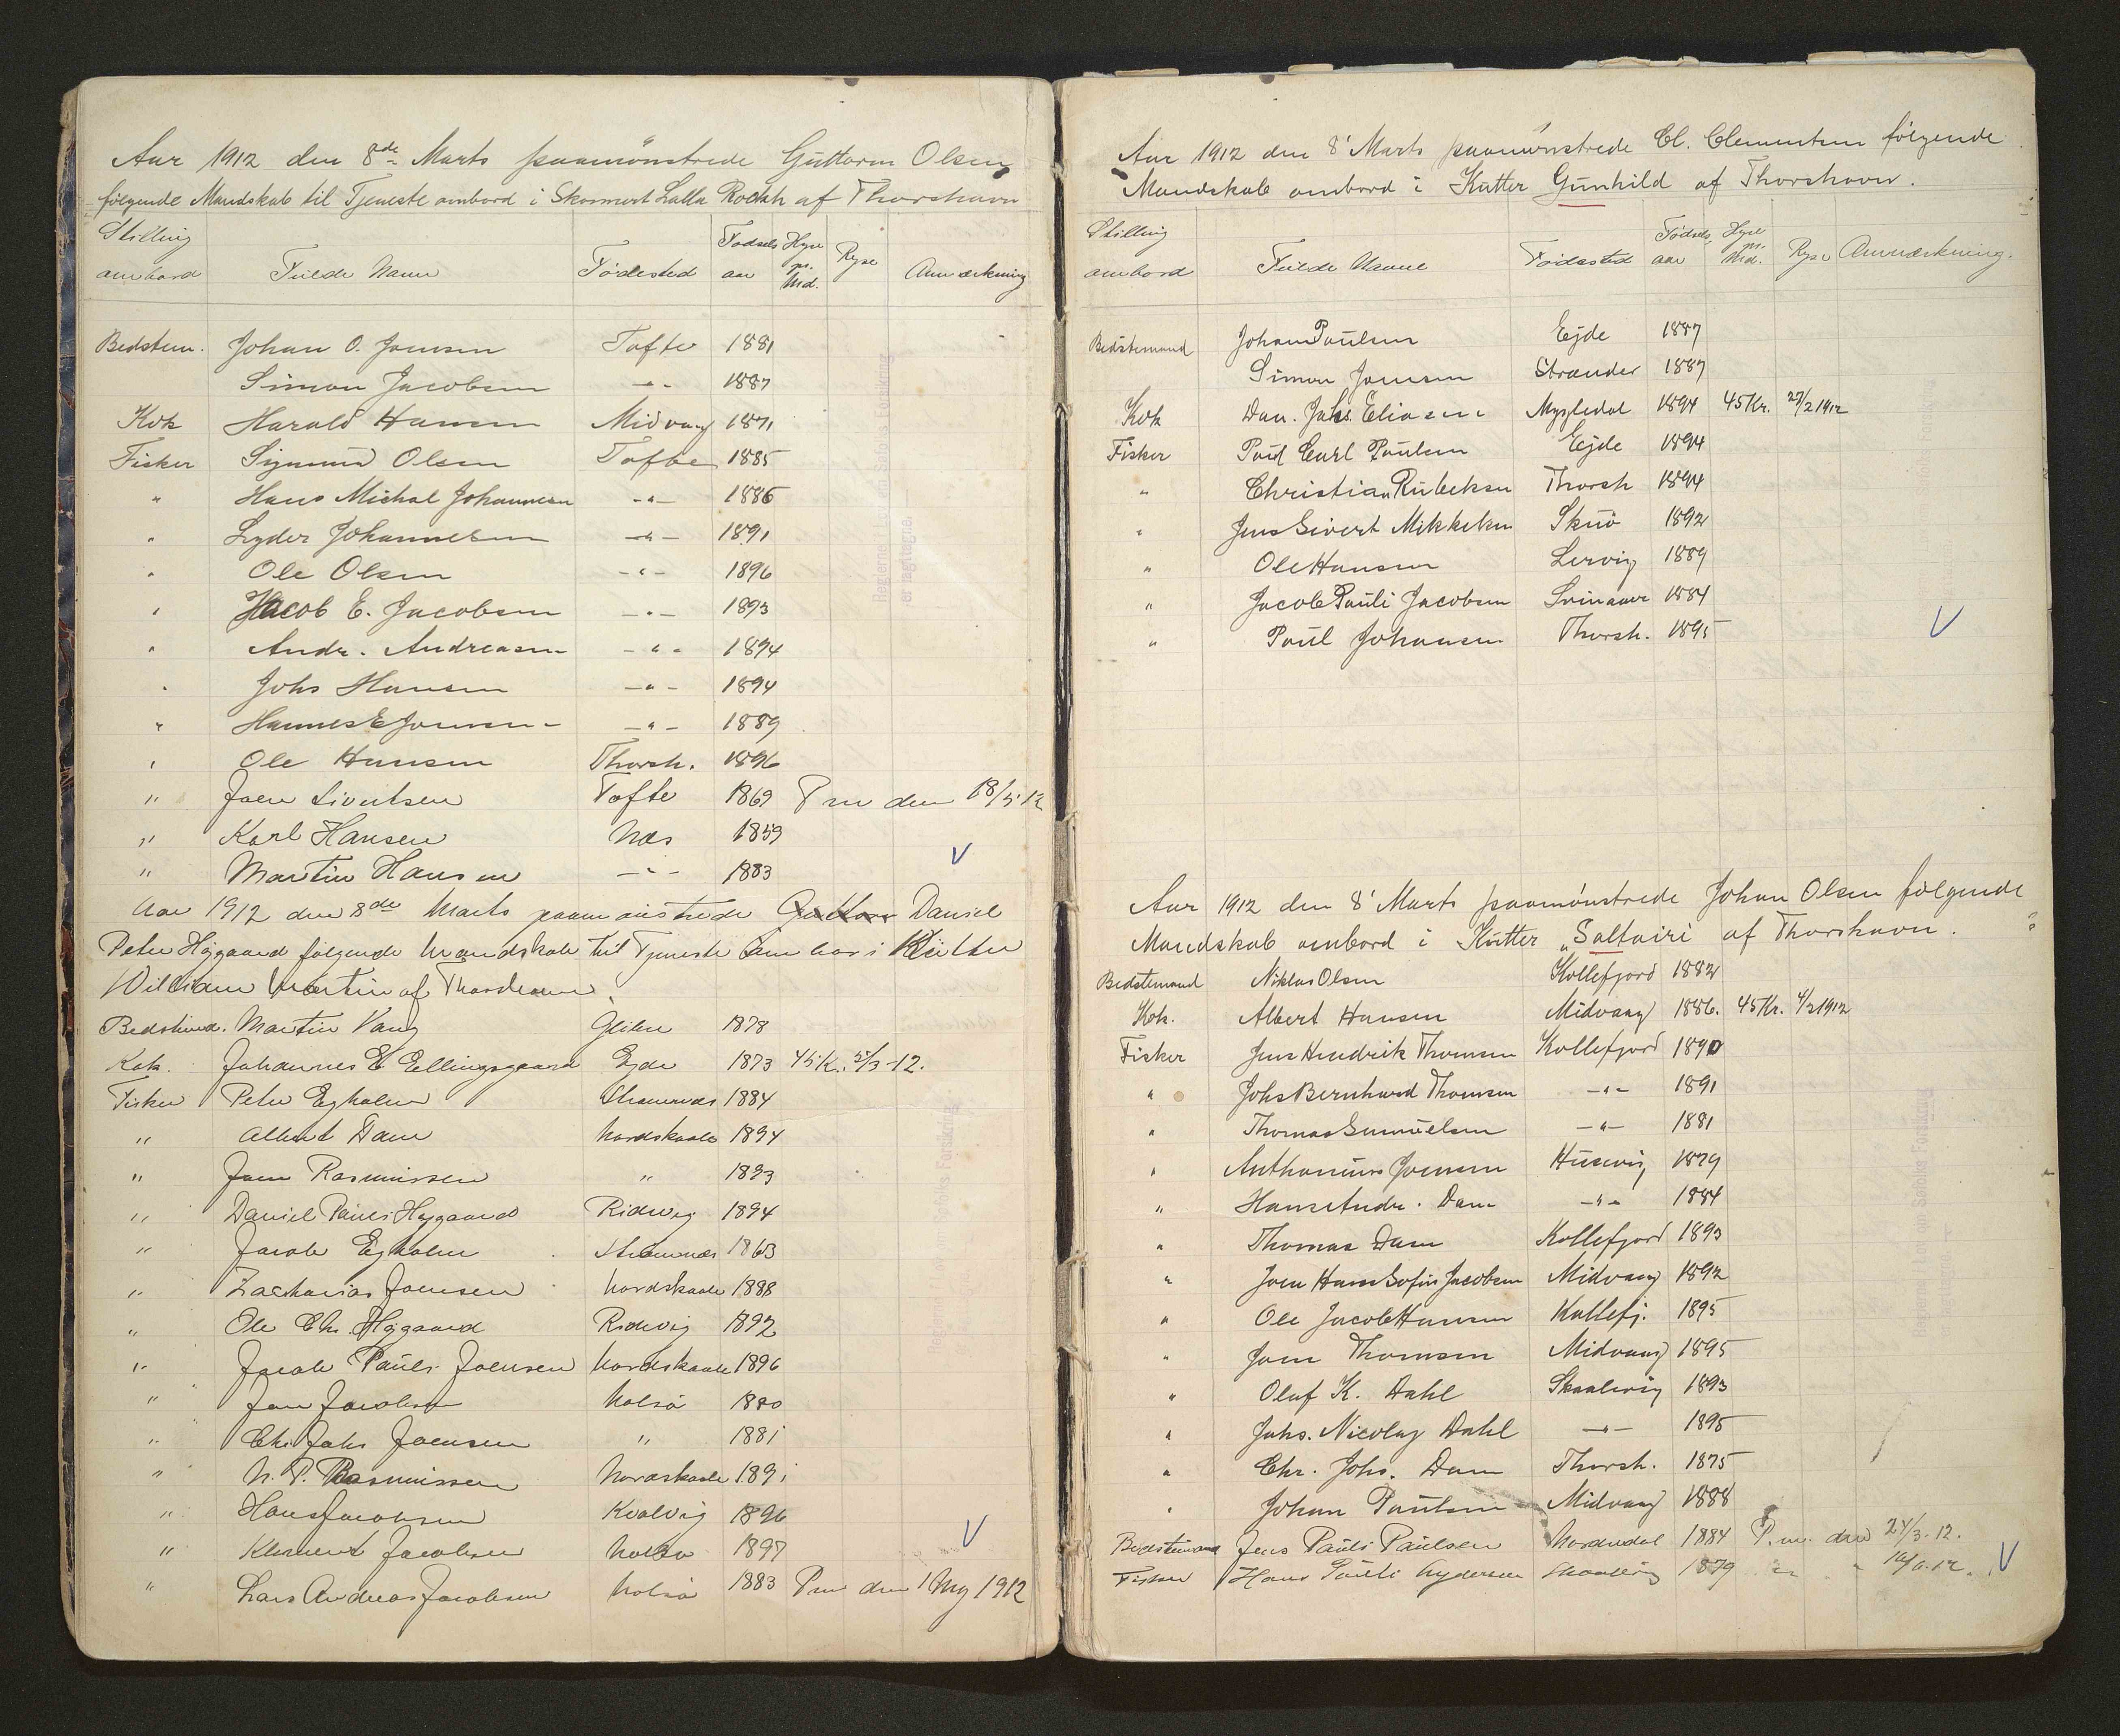 Aar 1912 den 8de Marts paamönstrede Guttorm Olsen
følgende Mandskab til Tjeneste ombord i Skonnert Lalla Rookh af Thorshavn
Stilling ombord Fulde Navn Fødested Fødsels aar Hyre pr. Md. Rejse Anmærkning
Bedstem. Johan O. Joensen Tofte 1881
Simon Jacobsen -"- 1887
Kok Harald Hansen Midvaag 1871
Fisker Sigmund Olsen Tofte 1885
" Hans Michal Johannesen -"- 1886
" Lyder Johannesen -"- 1891
" Ole Olsen -"- 1896
" Jacob E. Jacobsen -"- 1893
" Andr. Andreasen -"- 1894
" Johs Hansen -"- 1894
" Hannes E Joensen -"- 1889
" Ole Hansen Thorsh. 1896
" Joen Sivertsen Tofte 1869 P m den 18/5 12
" Karl Hansen Næs 1859
" Martin Hansen -"- 1883
Aar 1912 den 8de Marts paamönstrede Guttorm Daniel
Peter Højgaard følgende Mandskab til Tjeneste ombor i Kutter
William Martin af Thorshavn
Bedstmd. Martin Vang Glibre 1878
Kok. Johannes E Ellingsgaard Ejde 1873 45 K. 5/3-12.
Fisker Peter Egholm Strømnæs 1884
" Albert Dam Nordskaale 1894
" Joen Rasmussen " 1893
" Daniel Pauli Højgaard Ridevig 1894
" Jacob Egholm Strømnæs 1863
" Zacharias Joensen Nordskaale 1888
" Ole Chr. Højgaard Ridevig 1892
" Jacob Pauli Joensen Nordskaale 1896
" Joen Jacobsen Nolsö 1880
" Chr Johs Joensen " 1881
" N. P. Rasmussen Nordskaale 1891
" Hans Jacobsen Kvalvig 1896
" Klement Jacobsen Nolsö 1897
" Lars Andreas Jacobsen Nolsö 1883 P m den 1 Maj 1912
Aar 1912 den 8' Marts paamönstrede Cl. Clementsen følgende
Mandskab ombord i Kutter Gunhild af Thorshavn.
Stilling ombord Fulde Navne Fødested Fødsels aar Hyre pr. Md. Rejse Anmærkning.
Bedstemand Johan Poulsen Ejde 1887
Simon Joensen Strænder 1887
Kok Dan. Johs. Eliasen Mygledal 1894 45 Kr. 27/2 1912
Fisker Poul Carl Poulsen Ejde 1894
" Christian Rubeksen Thorsh 1894
" Jens Sivert Mikkelsen Skuö 1892
" Ole Hansen Lervig 1889
" Jacob Pauli Jacobsen Svinaaer 1884
" Poul Johansen Thorsh. 1895
Aar 1912 den 8' Marts paamönstrede Johan Olsen følgende
Mandskab ombord i Kutter "Saltairi af Thorshavn.
Bedstemand Niklas Olsen Kollefjord 1882
Kok. Albert Hansen Midvaag 1886. 45 Kr. 4/3 1912
Fisker Jens Hendrik Thomsen Kollefjord 1890
" Johs Bernhard Thomsen -"- 1891
" Thomas Samuelsen -"- 1881
" Anthonius Joensen Husevig 1879
" Hans Andr. Dam -"- 1884
" Thomas Dam Kollefjord 1893
" Joen Hans Sofus Jacobsen Midvaag 1892
" Ole Jacob Hansen Kollefj. 1895
" Joen Thomsen Midvaag 1895
" Oluf K. Dahl Skaalevig 1893
" Johs. Nicolaj Dahl -"- 1895
" Chr. Johs. Dam Thorsh. 1875
" Johan Poulsen Midvaag 1888
Bedstemand Jens Pauli Paulsen Nordredal 1884 P. m. den 24/3-12.
Fisker Hans Pauli Skaalevig 1879 " "